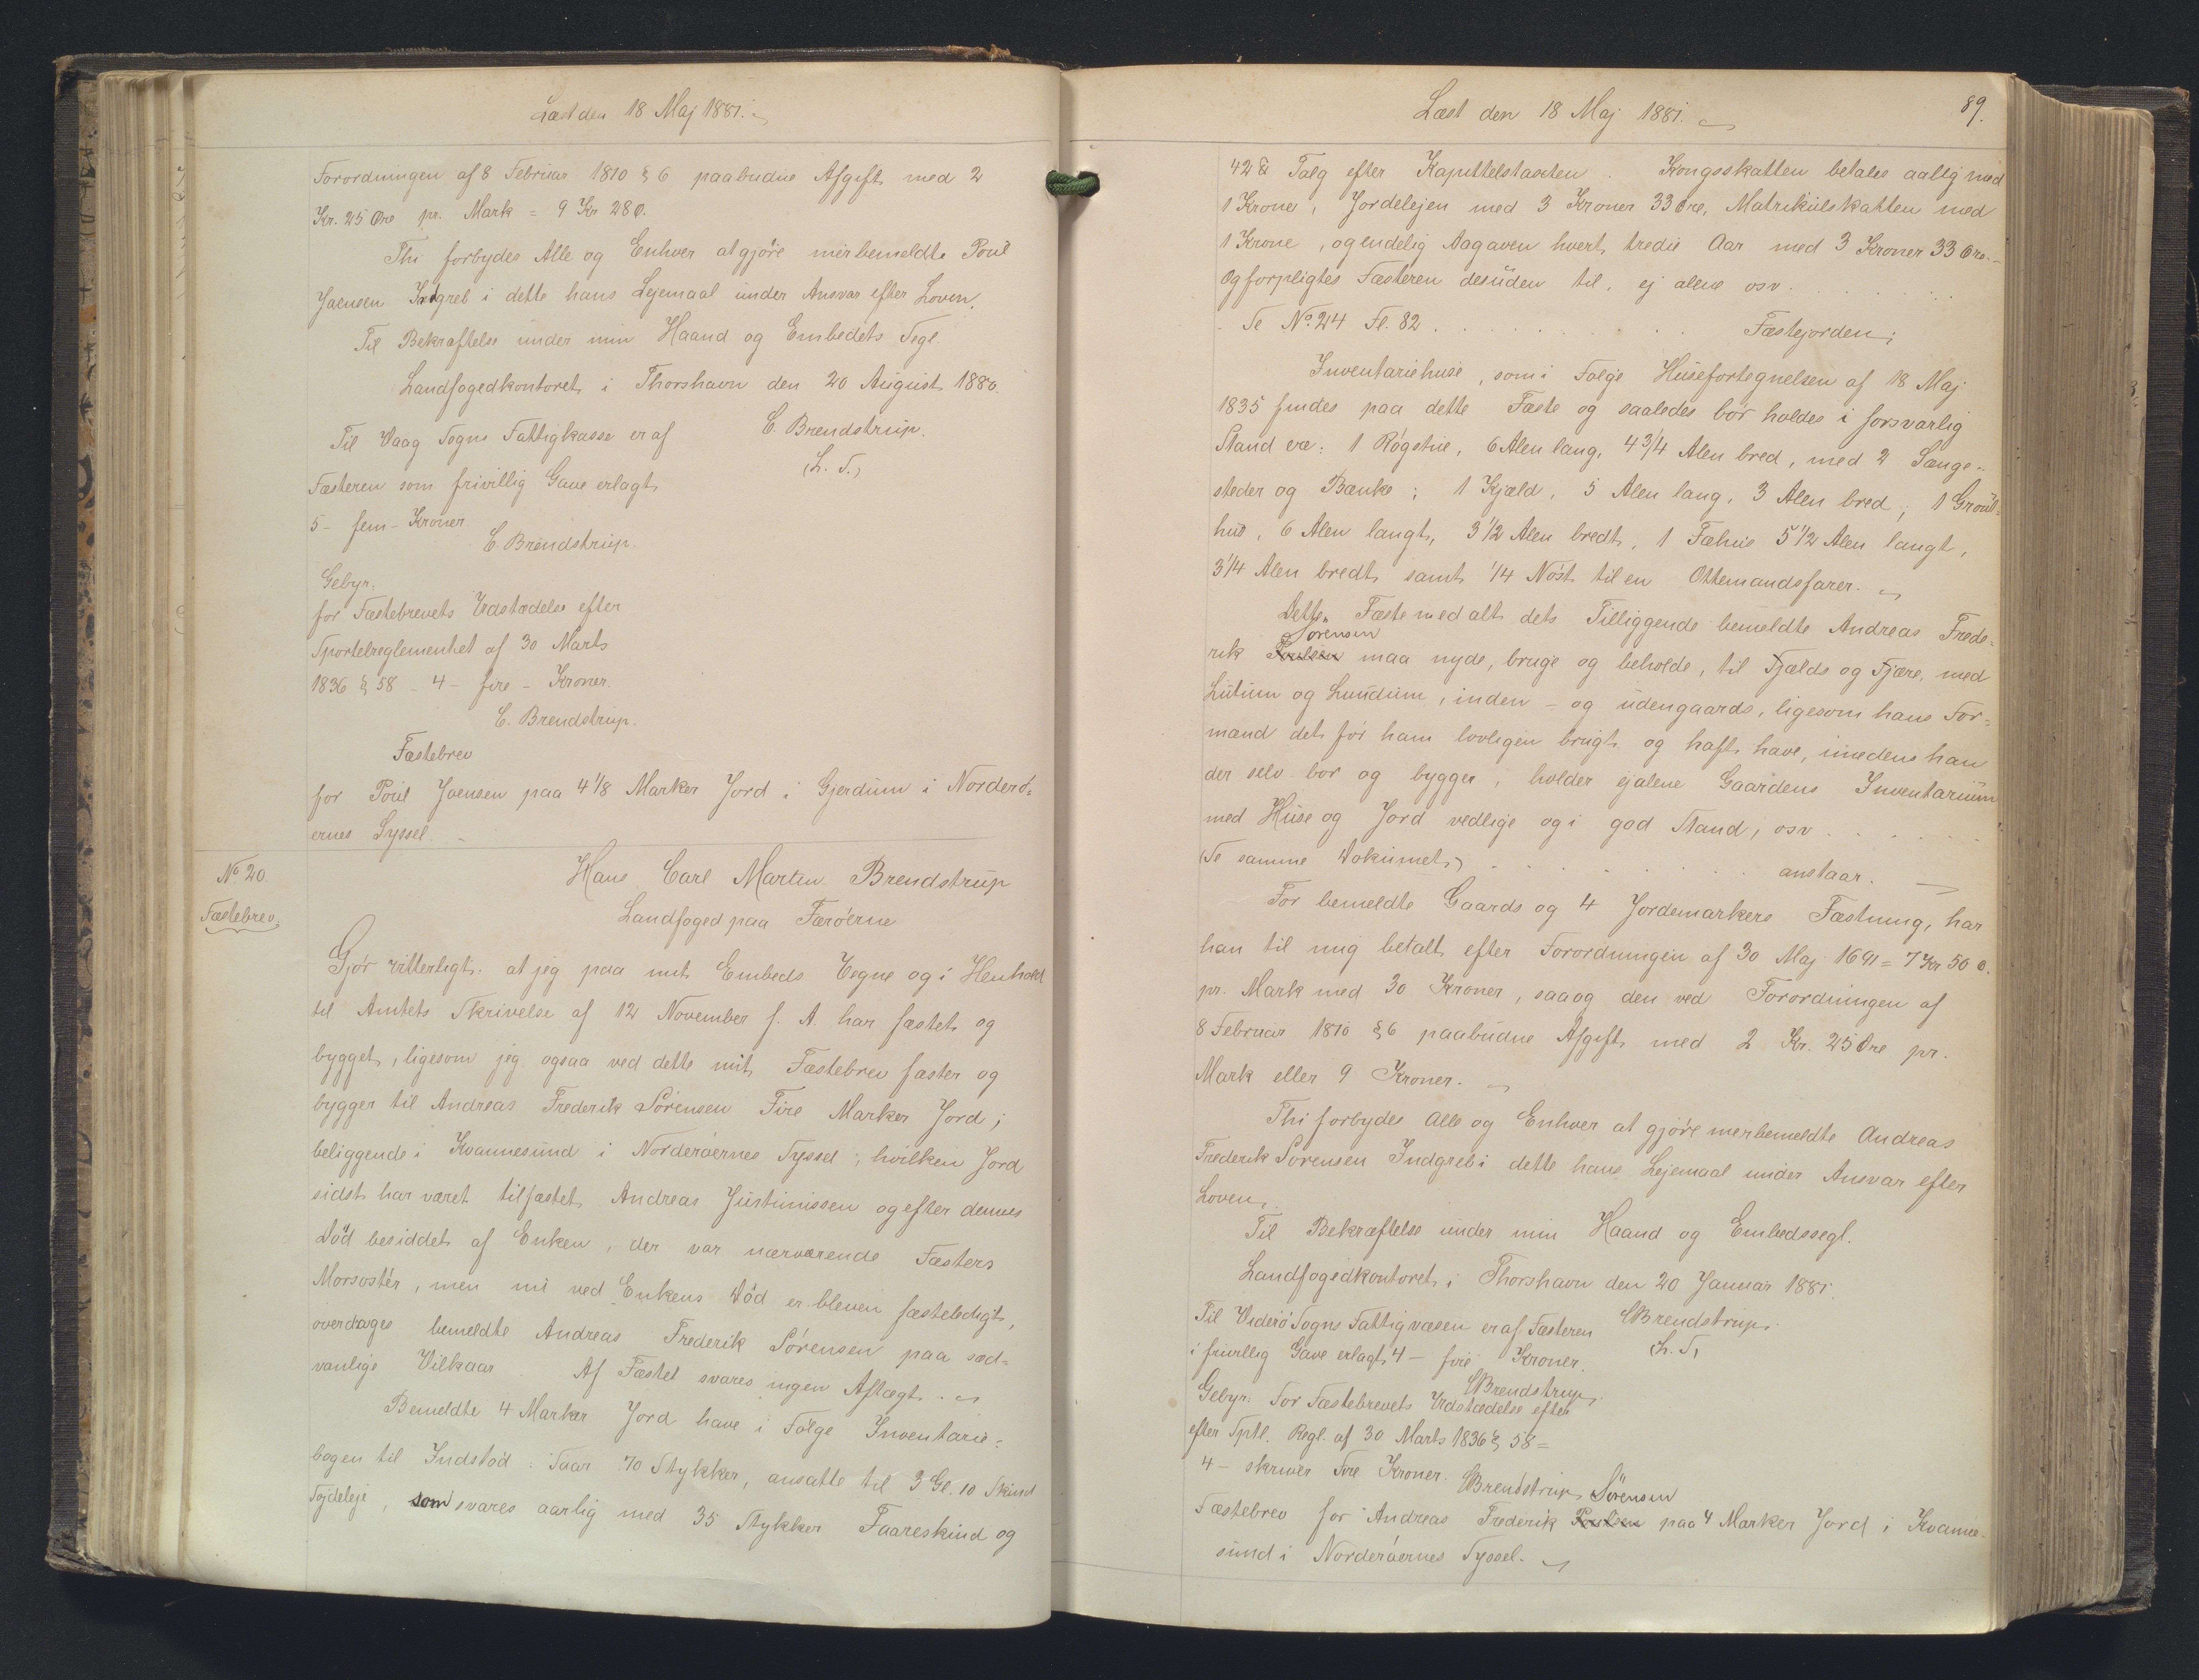 Læst den 18 Maj 1881.
Forordningen af 8 Februar 1810 § 6 paabudne Afgift med 2
Kr. 25 Øre pr. Mark = 9 Kr 28 Ø.
Thi forbydes Alle og Enhver at gjöre merbemeldte Poul
Joensen Indgreb i dette hans Lejemaal under Ansvar efter Loven.
Til Bekræftelse under min Haand og Embedets Segl.
Landfogedkontoret i Thorshavn den 20 August 1880.
C. Brendstrup.
(L. S.)
Til Vaag Sogns Fattigkasse er af
Fæsteren som frivillig Gave erlagt
5 - fem - Kroner
C. Brendstrup.
Gebyr.
for Fæstebrevets Udstædelse efter
Sportelreglementet af 30 Marts
1836 § 58 - 4 - fire - Kroner.
C. Brendstrup.
Fæstebrev
for Poul Joensen paa 4 1/8 Marker Jord i Gjerdum i Norderö-
ernes Syssel.
No 20.
Fæstebrev.
Hans Carl Martin Brendstrup
Landfoged paa Færöerne
Gjör vitterligt: at jeg paa mit Embeds Vegne og i Henhold
til Amtets Skrivelse af 12 November f. A. har fæstet og
bygget, ligesom jeg ogsaa ved dette mit Fæstebrev fæster og
bygger til Andreas Frederik Sörensen Fire Marker Jord;
beliggende i Kvannesund i Norderöernes Syssel, hvilken Jord
sidst har været tilfæstet Andreas Justinissen og efter dennes
Död besiddet af Enken, der var nærværende Fæsters
Morsöster, men nu ved Enkens Död er bleven fæsteledigt,
overdrages bemeldte Andreas Frederik Sörensen paa sæd-
vanlige Vilkaar. Af Fæstet svares ingen Aflægt.
Bemeldte 4 Marker Jord have i Fölge Inventarie-
bogen til Indstöd: Faar 70 Stykker, ansatte til 3 Gl. 10 Skind
Söjdeleje, som svares aarlig med 35 Stykker Faareskind og
Læst den 18 Maj 1881.
89.
42 ℔ Talg efter Kapittelstaxten. Kongsskatten betales aarlig med
1 Krone, Jordelejen med 3 Kroner 33 Øre, Matrikulskatten med
1 Krone, og endelig Aagaven hvert tredie Aar med 3 Kroner 33 Øre.
Og forpligtes Fæsteren desuden til, ej alene osv. . . . . . . .
Se No 24 Fl. 82 . . . . . . . . . . Fæstejorden;
Inventariehuse, som i Fölge Husefortegnelsen af 18 Maj
1835 findes paa dette Fæste og saaledes bör holdes i forsvarlig
Stand ere: 1 Rögstue, 6 Alen lang, 4 3/4 Alen bred, med 2 Senge-
steder og Bænke; 1 Kjæld, 5 Alen lang, 3 Alen bred; 1 Grout-
hus, 6 Alen langt, 3 1/2 Alen bredt, 1 Fæhus 5 1/2 Alen langt,
3 1/4 Alen bredt samt 1/4 Nöst til en Ottemandsfarer.
Dette Fæste med alt dets Tilliggende bemeldte Andreas Frede-
Sörensen
rik Poulsen maa nyde, bruge og beholde, til Fjælds og Fjære, med
Lutum og Lundum, inden - og udengaards, ligesom hans For-
mænd det för ham lovligen brugt og haft have, imedens han
der selv bor og bygger, holder ej alene Gaardens Inventarium
med Huse og Jord vedlige og i god Stand, osv . . . . . .
(Se samme Dokumet) . . . . . . . . . . anstaar.
For bemeldte Gaards og 4 Jordemarkers Fæstning, har
han til mig betalt efter Forordningen af 30 Maj 1691 = 7 Kr 50 Ø.
pr. Mark med 30 Kroner, saa og den ved Forordningen af
8 Februar 1810 § 6 paabudne Afgift med 2 Kr. 25 Øre pr.
Mark eller 9 Kroner.
Thi forbydes Alle og Enhver at gjöre merbemeldte Andreas
Frederik Sörensen Indgreb i dette hans Lejemaal under Ansvar efter
Loven.
Til Bekræftelse under min Haand og Embedssegl.
Landfogedkontoret i Thorshavn den 20 Januar 1881.
CBrendstrup.
(L. S.)
Til Viderö Sogns Fattigvæsen er af Fæsteren
i frivillig Gave erlagt 4 - fire Kroner.
CBrendstrup.
Gebyr: For Fæstebrevets Udstædelse efter
efter Sptl. Regl. af 30 Marts 1836 § 58 =
4 - skriver Fire Kroner. CBrendstrup
Sörensen
Fæstebrev for Andreas Frederik Poulsen paa 4 Marker Jord i Kvanne-
sund i Norderöernes Syssel.